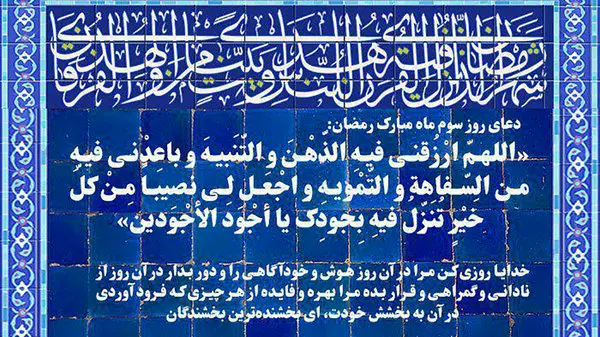 شهر رمضان الذی أنزل فیه القرآن هدی للناس و بینات من الهدی و الفرقان
دعای روز سوم ماه مبارک رمضان:
«اللهمّ ارْزقنی فیهِ الذّهْنَ و التّنَبیهَ و باعِدْنی فیهِ
من السّفاهةِ و التّمْویهِ و اجْعَل لی نصیباً مِنْ کلّ
خَیْرٍ تُنَزّلُ فیهِ بِجودِک یا أجْوَدَ الأجْوَدینَ»
خدایا روزی کن مرا در آن روز هوش و خودآگاهی را و دور بدار در آن روز از
نادانی و گمراهی و قرار بده مرا بهره و فایده از هر چیزی که فرود آوردی
در آن به بخشش خودت، ای بخشنده‌ترین بخشندگان